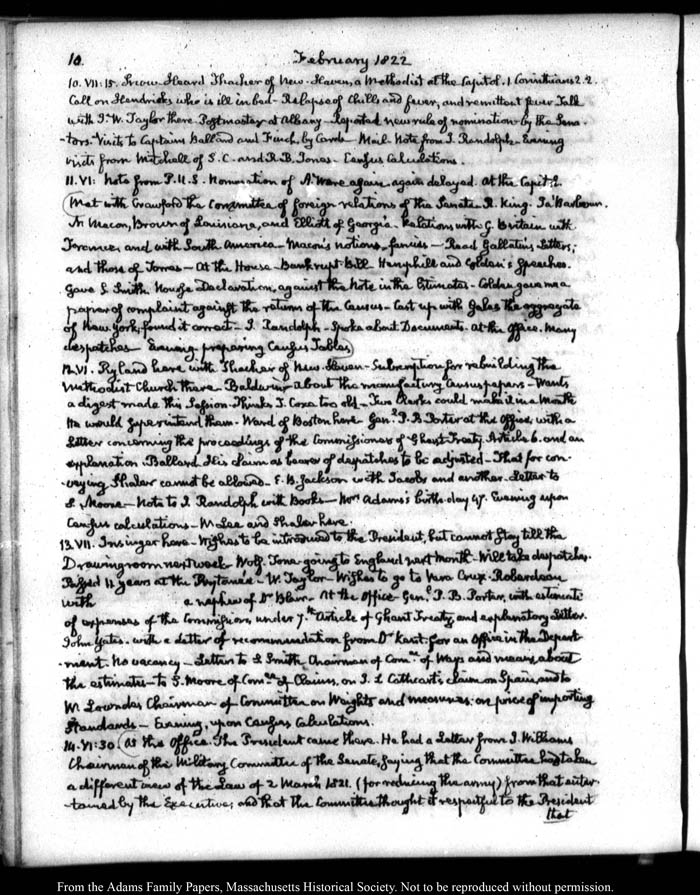 10. February 1822
10. VII:15. Snow. Heard Thacher of New-Haven, a Methodist at the Capitol. 1 Corinthians 2.2.
Call on Hendricks who is ill in bed – Relapse of chills and fever, and remittent fever. Talk
with J. W. Taylor there. Postmaster at Albany – Reported new rule of nomination by the Sena-
tors. Visits to Captains Ballard and Finch, by Cards – Mail. Note from J. Randolph. Evening
visits from Mitchell of S.C. and R. B. Jones – Census Calculations.
11. VI: Note from P.U.S. Nomination of A. Ware again delayed. At the Capitol
Met with Crawford the Committee of foreign relations of the Senate. R. King. Ja Barbour.
N Macon, Brown of Louisiana, and Elliott of Georgia – Relations with G. Britain with
France, and with South America – Macon's notions – fancies – Read Gallatin's Letters;
and those of Torres – At the House – Bankrupt Bill. Hemphill and Colden's Speeches.
Gave S. Smith, Declaration, against the Note in the Estimates – Colden gave me a
paper of complaint against the returns of the Census – Cast up with Gales the aggregate
of New York, found it correct – J. Randolph – Spoke about Documents. At the Office. Many
despatches – Evening. preparing Census Tables.
12. VI. Ryland here with Thacher of New-Haven – Subscription for rebuilding the
Methodist Church there. Baldwin – about the manufacturing Census papers – Wants
a digest made this Session – Thinks T. Coxe too old – Two Clerks could make it in a Month
He would superintend them. Ward of Boston here – Genl. P. B. Porter at the Office, with a
Letter concerning the proceedings of the Commissioners of Ghent Treaty Article 6. and an
explanation – Ballard. His claim as bearer of despatches to be adjusted – That for con-
veying Shaler cannot be allowed – E. B. Jackson with Jacobs and another. Letter to
S. Moore – Note to J. Randolph with Books – Mrs. Adams's birth-day 47. Evening upon
Census calculations – McLee and Shaler here.
13. VII. Insinger here – Wishes to be introduced to the President, but cannot stay till the
Drawing room next week. Wolf. Tone going to England next Month – Will take despatches.
Passed 11 years at the Prytanée – W. Taylor – Wishes to go to Vera Cruz – Robardeau
with a nephew of Dr Blair. At the Office – Genl. P. B. Porter, with estimate
of expenses of the Commission under 7th Article of Ghent Treaty, and explanatory Letter.
John Yates. with a Letter of recommendation from Dr Kent; for an Office in the Depart-
ment. No vacancy – Letter to S. Smith Chairman of Comee. of Ways and means, about
the estimates – to S. Moore of Comee. of Claims, on J. L. Cathcart's claim on Spain, and to
W. Lowndes Chairman of Committee on Weights and measures: on price of importing
Standards – Evening, upon Census Calculations.
14. VI:30 At the Office. The President came there. He had a Letter from J. Williams
Chairman of the Military Committee of the Senate, saying that the Committee had taken
a different view of the Law of 2 March 1821. (for reducing the army) from that enter-
tained by the Executive; and that the Committee thought it respectful to the President
that
From the Adams Family Papers, Massachusetts Historical Society. Not to be reproduced without permission.